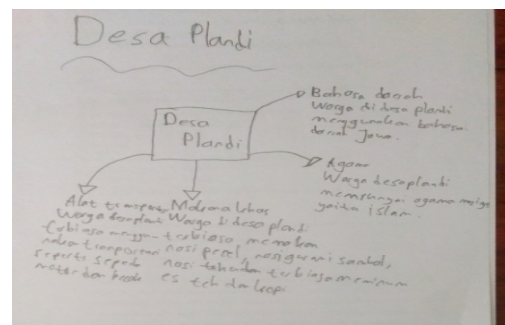 Desa Plandi
Desa
Plandi
Bahasa daerah
Warga di desa plandi
menggunakan bahasa
daerah Jawa.
Agama
Warga desa plandi
mempunyai agama
yaitu islam.
Alat transport
Warga desa plandi
terbiasa menggun
nakan transportasi
seperti sepeda
motor dan
Makanan khas
Warga di desa plandi
terbiasa memakan
nasi pecel, nasi goreng sambal,
nasi tahu dan terbiasa meminum
es teh dan kopi